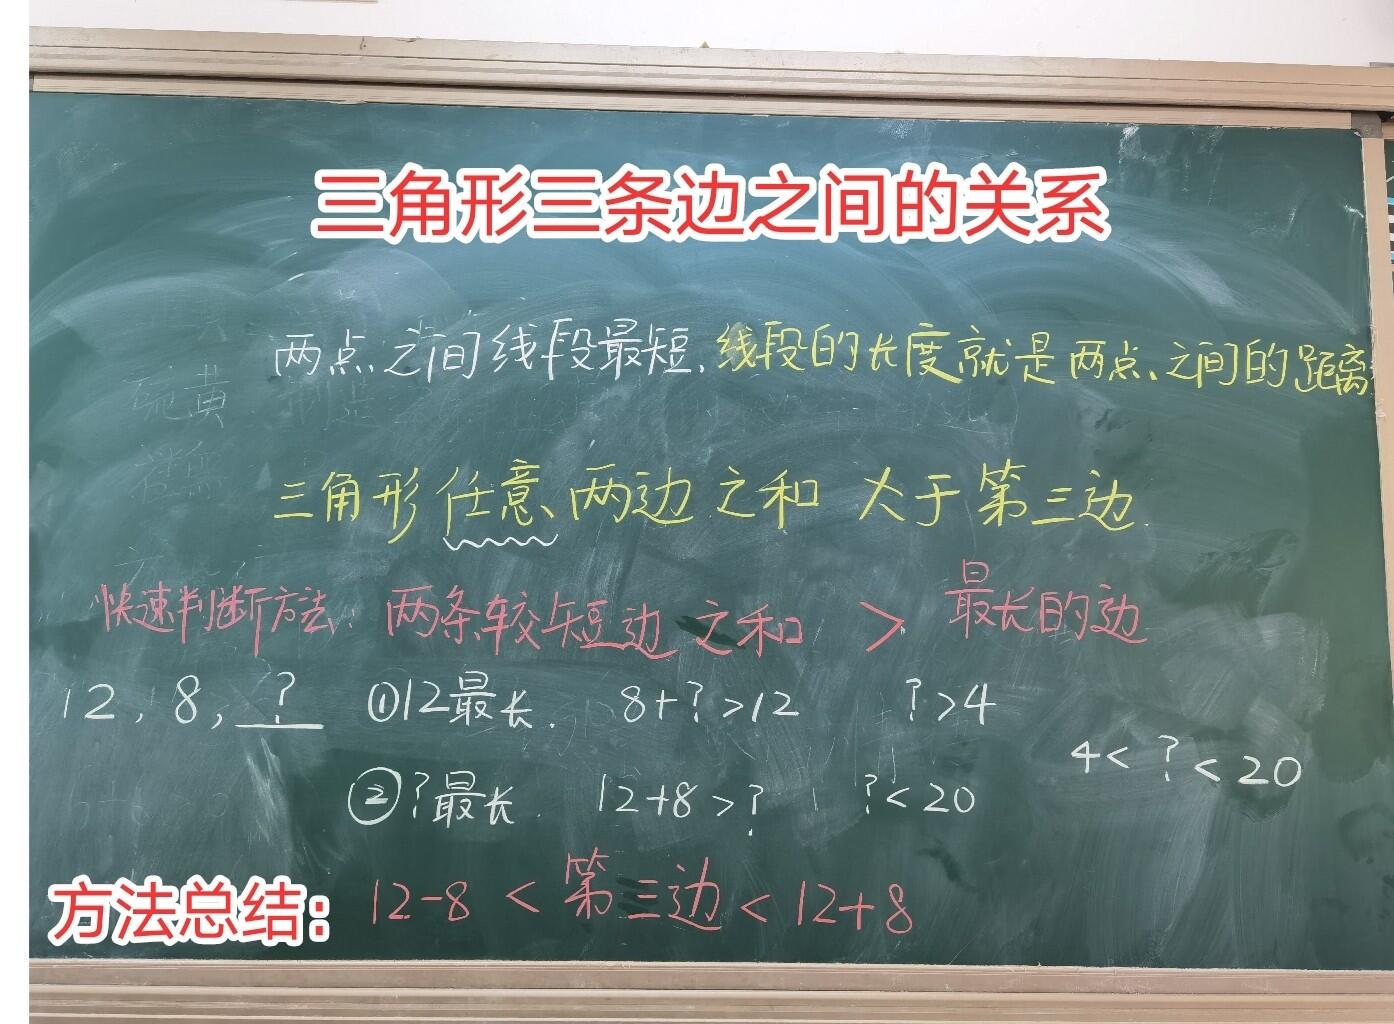 三角形三条边之间的关系
两点之间线段最短,线段的长度就是两点之间的距离
三角形任意两边之和 大于第三边.
快速判断方法: 两条较短边之和 > 最长的边
12, 8, ? ①12最长. 8+?>12 ?>4
4< ? < 20
②?最长. 12+8>? ?<20
方法总结: 12-8 < 第三边 < 12+8